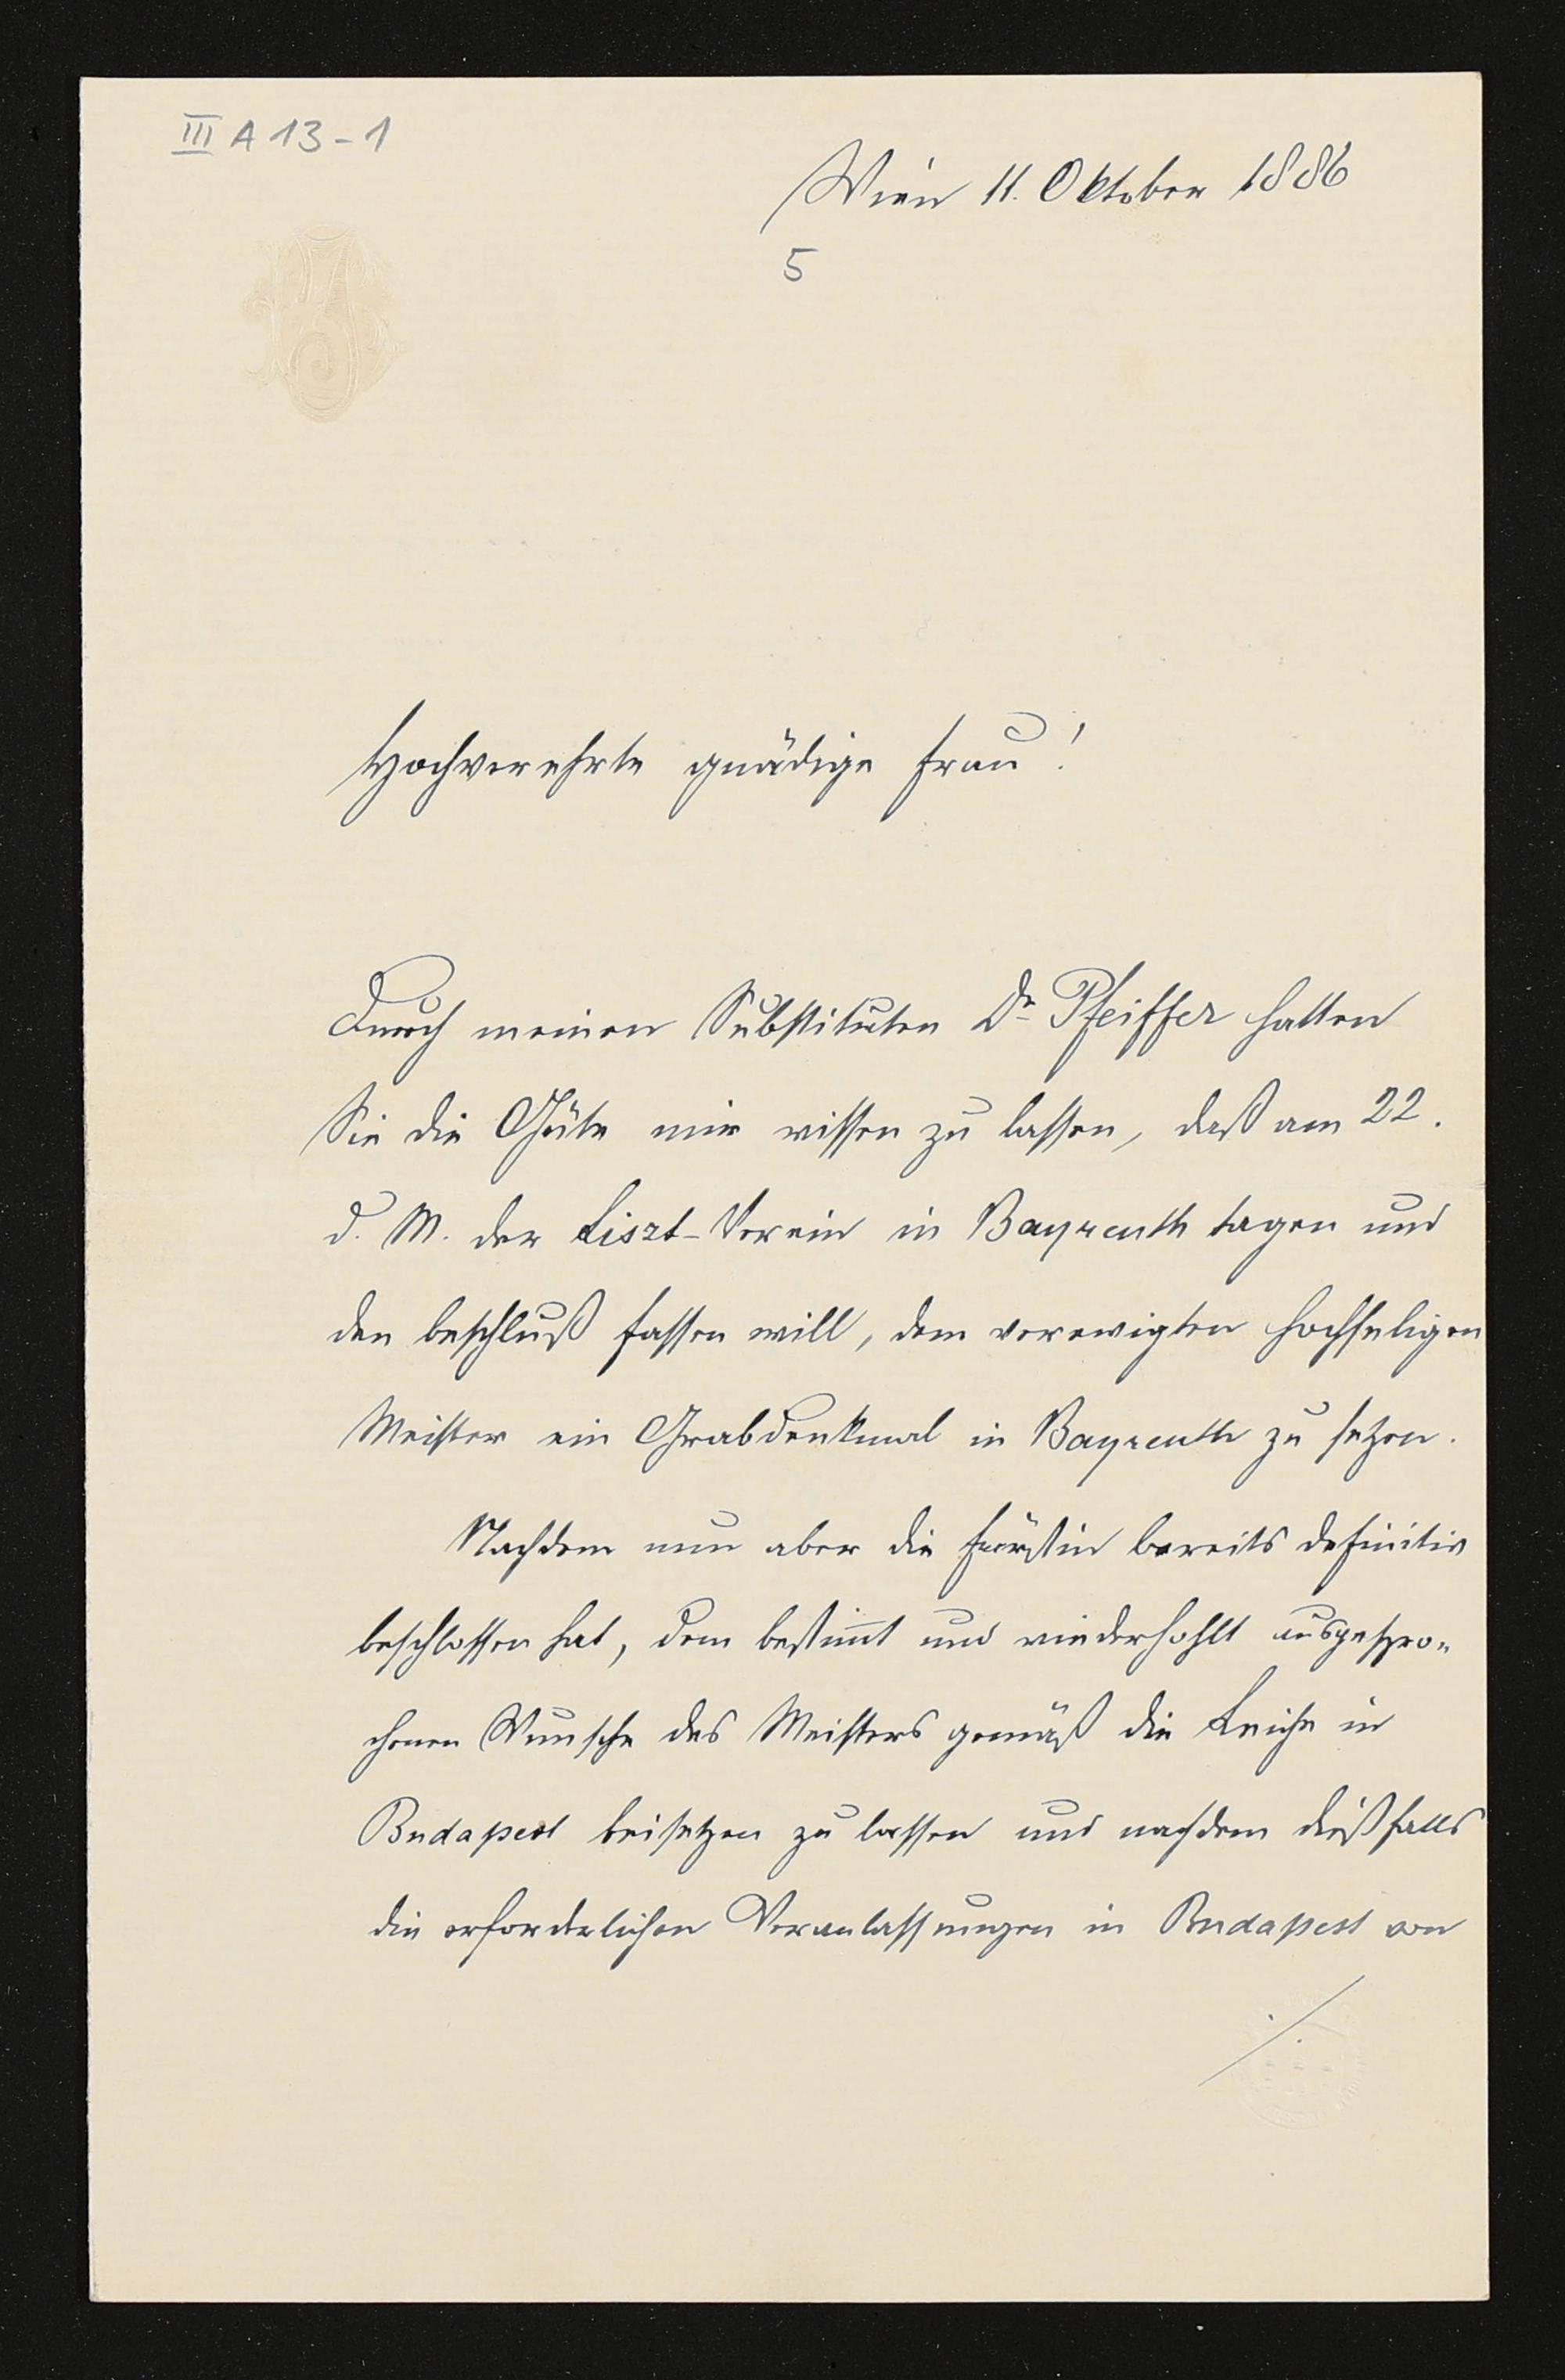 III A 13-1
Wien 11. Oktober 1886
5
Hochverehrte gnädige Frau!
Durch meinen Substituten Dr Pfeiffer hatten
Sie die Güte mir wissen zu lassen, daß am 22.
d. M. der Liszt-Verein in Bayreuth tagen und
den Beschluß fassen will, dem verewigten hochseligen
Meister ein Grabdenkmal in Bayreuth zu setzen.
Nachdem nun aber die Fürstin bereits definitiv
beschlossen hat, dem bestim̄t und wiederhohlt ausgespro„
chenen Wunsche des Meisters gemäß die Leiche in
Budapest beisetzen zu lassen und nachdem dießfalls
die erforderlichen Veranlassungen in Budapest von
./.